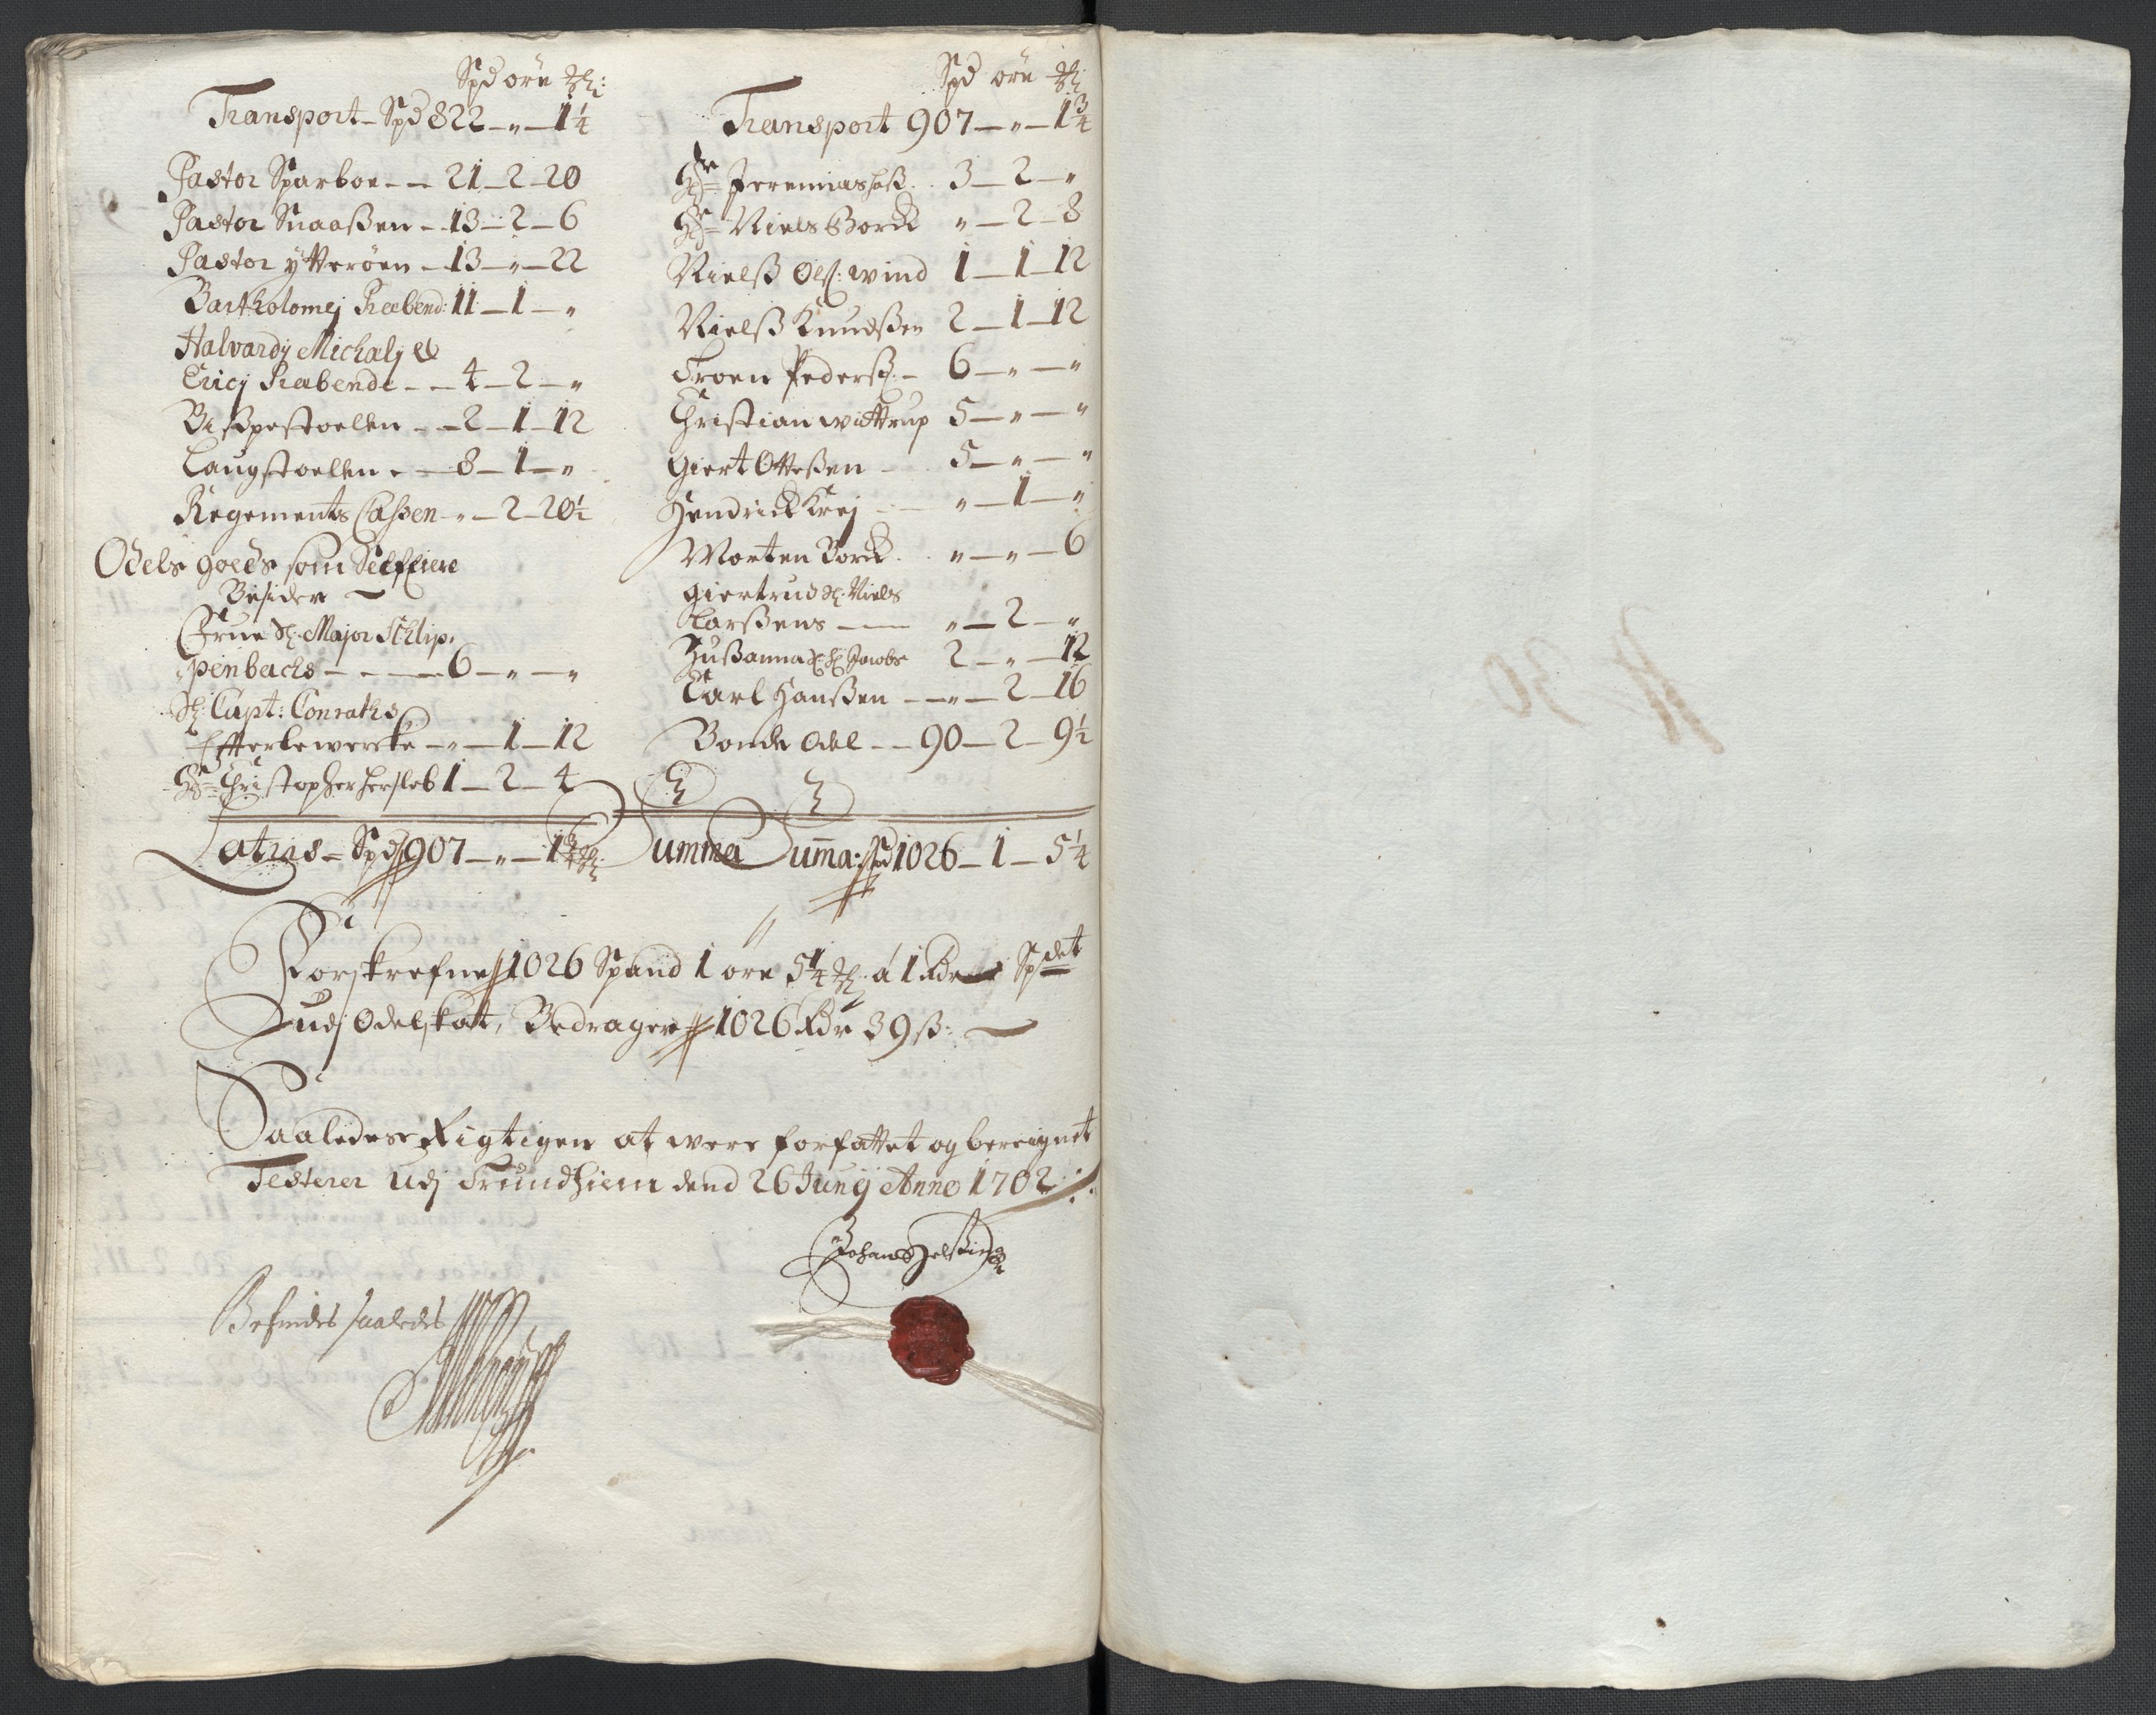 Spd øre
Transport - Spd 822 - " - 1 1/4
Pastor Sparboe - - 21 - 2 - 20
Pastor Snaaßen - 13 - 2 - 6
Pastor ytterøen - 13 - " - 22
Bartholomej Præbend: 11 - 1 - "
Halvardj Michalj et
Ericj Præbende - - 4 - 2 - "
Bißpestoelen - - 2 - 1 - 12
Laugstoelen - - 8 - 1 - "
Regements Caßen - " - 2 - 20 1/2
Odels goeds som Selfeiere
Besider
Frue Sl. Major Schlip,
penbachs - - - - 6 - " - "
Sl: Capt: Conraths
Efterlewerske - " - 1 - 12
Hr Christopher Hersleb 1 - 2 - 4
Latris - Spd 907 - " - 1 3/4
Spd øre
Transport 907 - " - 1 3/4
Hr Jeremias 3 - 2 - "
Hr Niels Borck " - 2 - 8
Nielß Olß: wind 1 - 1 - 12
Nielß Knudßen 2 - 1 - 12
Froen Pederß. - 6 - " - "
Christian wittrup 5 - " - "
Giert Otteßen 5 - " - "
Hendrick Krej - - " - 1 - "
Morten Borck . . " - " - 6
Giertrud Sl. Niels
Larßens - - " - 2 - "
Zußanna Sl. Jacobs 2 - " - 12
Carl Hanßen - - " - 2 - 16
Bonde Odel - - 90 - 2 - 9 1/2
Summa Suma: Spd 1026 - 1 - 5 1/4
Forskrefne 1026 Spand 1 øre 5 1/4 á 1 Rdr Spdet
udj Odelskat, Bedrager 1026 Rdr 39 ß:
Saaledes Rigtigen at were forfattet og bereignet
Testerer Udj Trundhiem dend 26 Junij Anno 1702
Befindes saaledes